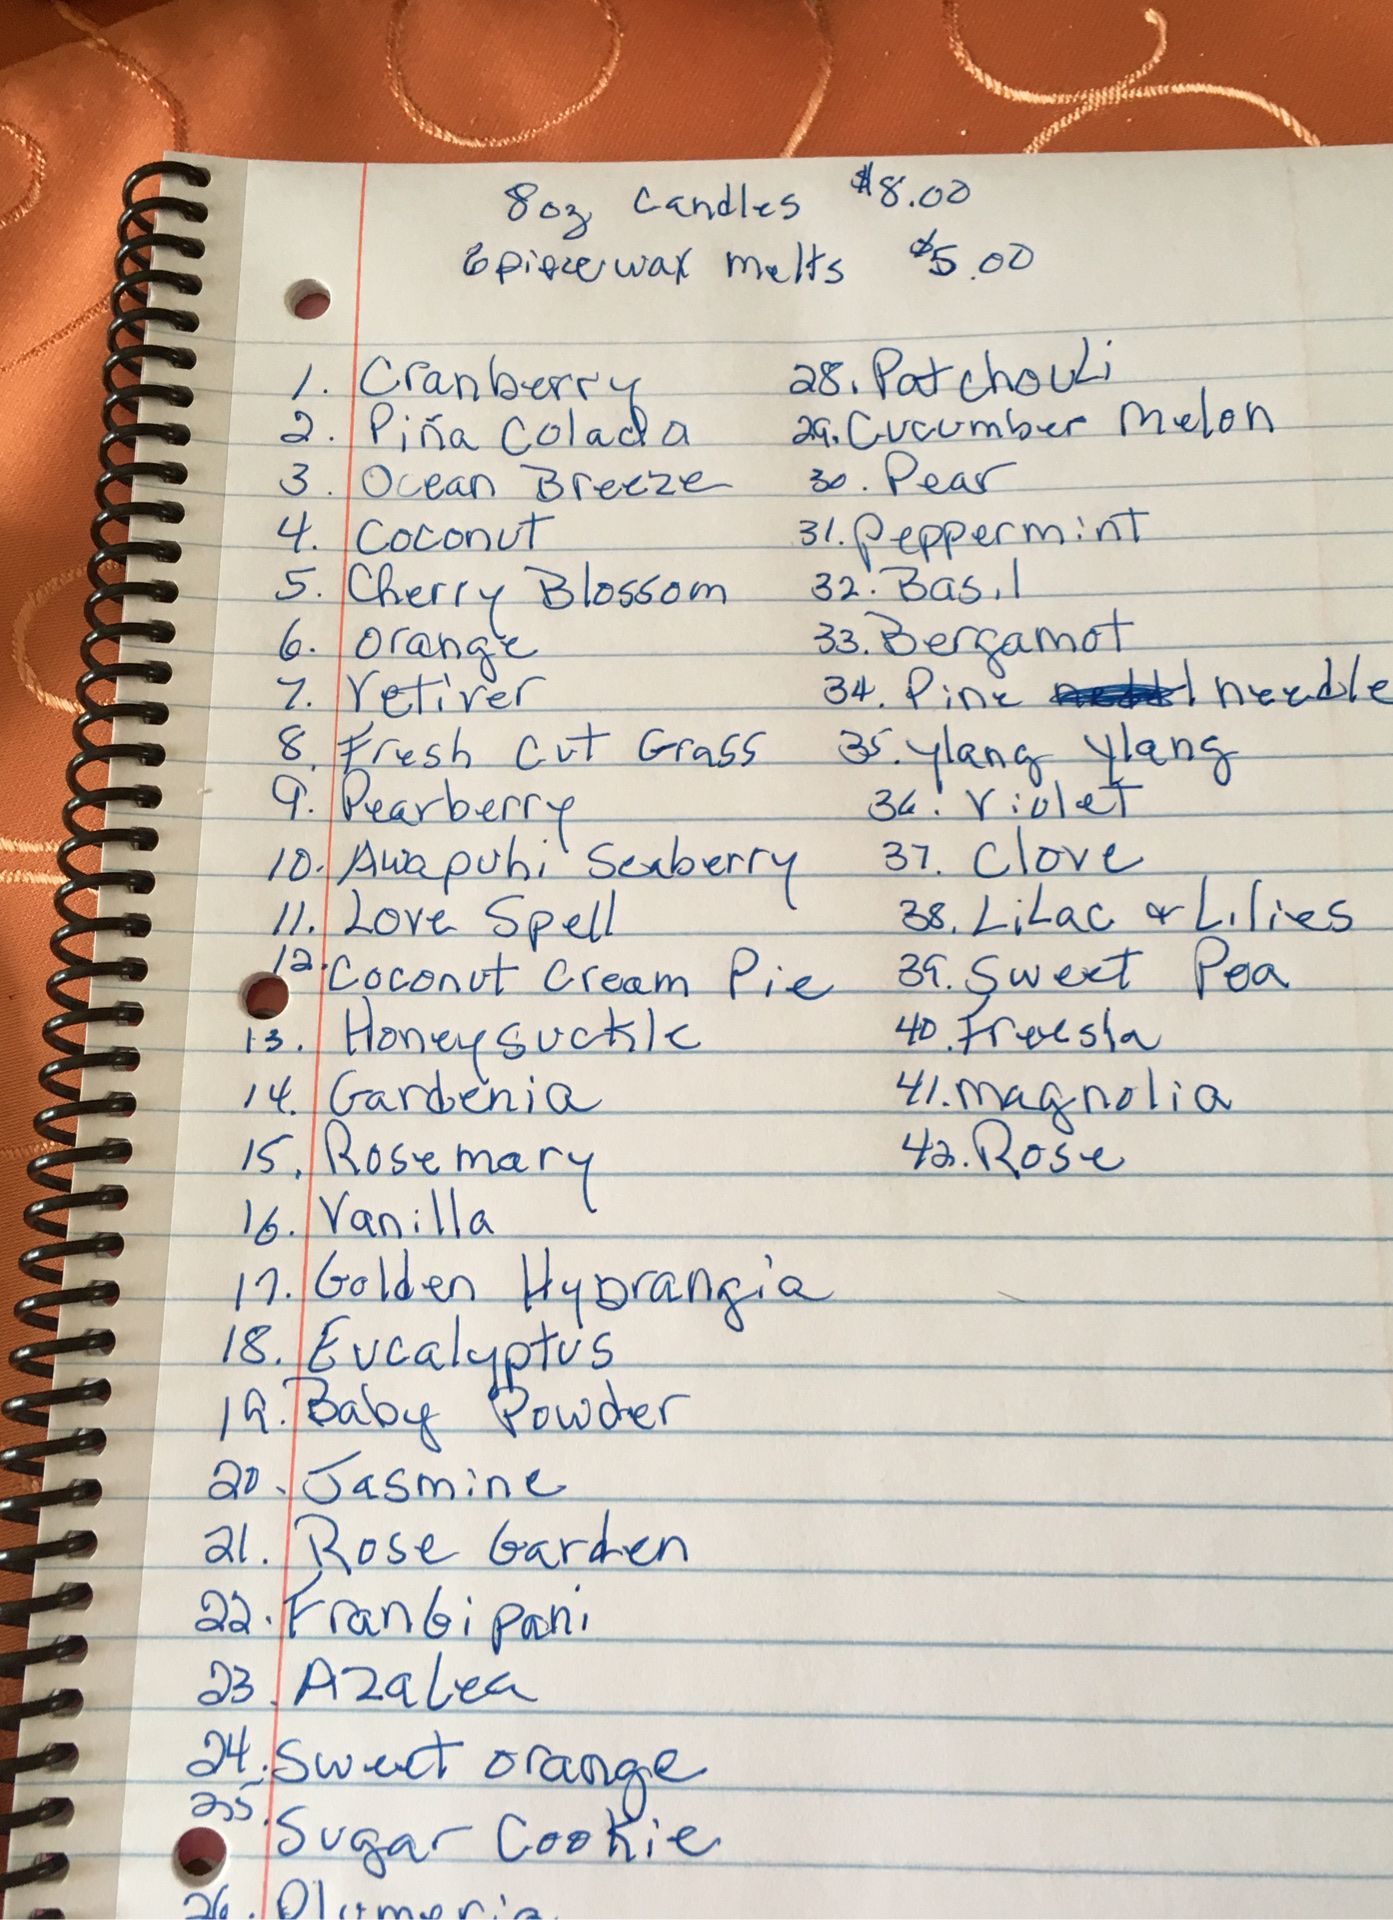 8oz Candles $8.00
6 piece wax melts $5.00
1. Cranberry
2. Piña Colada
3. Ocean Breeze
4. Coconut
5. Cherry Blossom
6. Orange
7. Vetiver
8. Fresh Cut Grass
9. Pearberry
10. Awapuhi Seaberry
11. Love Spell
12. Coconut Cream Pie
13. Honeysuckle
14. Gardenia
15. Rosemary
16. Vanilla
17. Golden Hydrangia
18. Eucalyptus
19. Baby Powder
20. Jasmine
21. Rose Garden
22. Frangipani
23. Azalea
24. Sweet orange
25. Sugar Cookie
26. Plumeria
28. Patchouli
29. Cucumber Melon
30. Pear
31. Peppermint
32. Basil
33. Bergamot
34. Pine needle
35. ylang ylang
36. Violet
37. Clove
38. LiLac & Lilies
39. Sweet Pea
40. Freesia
41. Magnolia
42. Rose